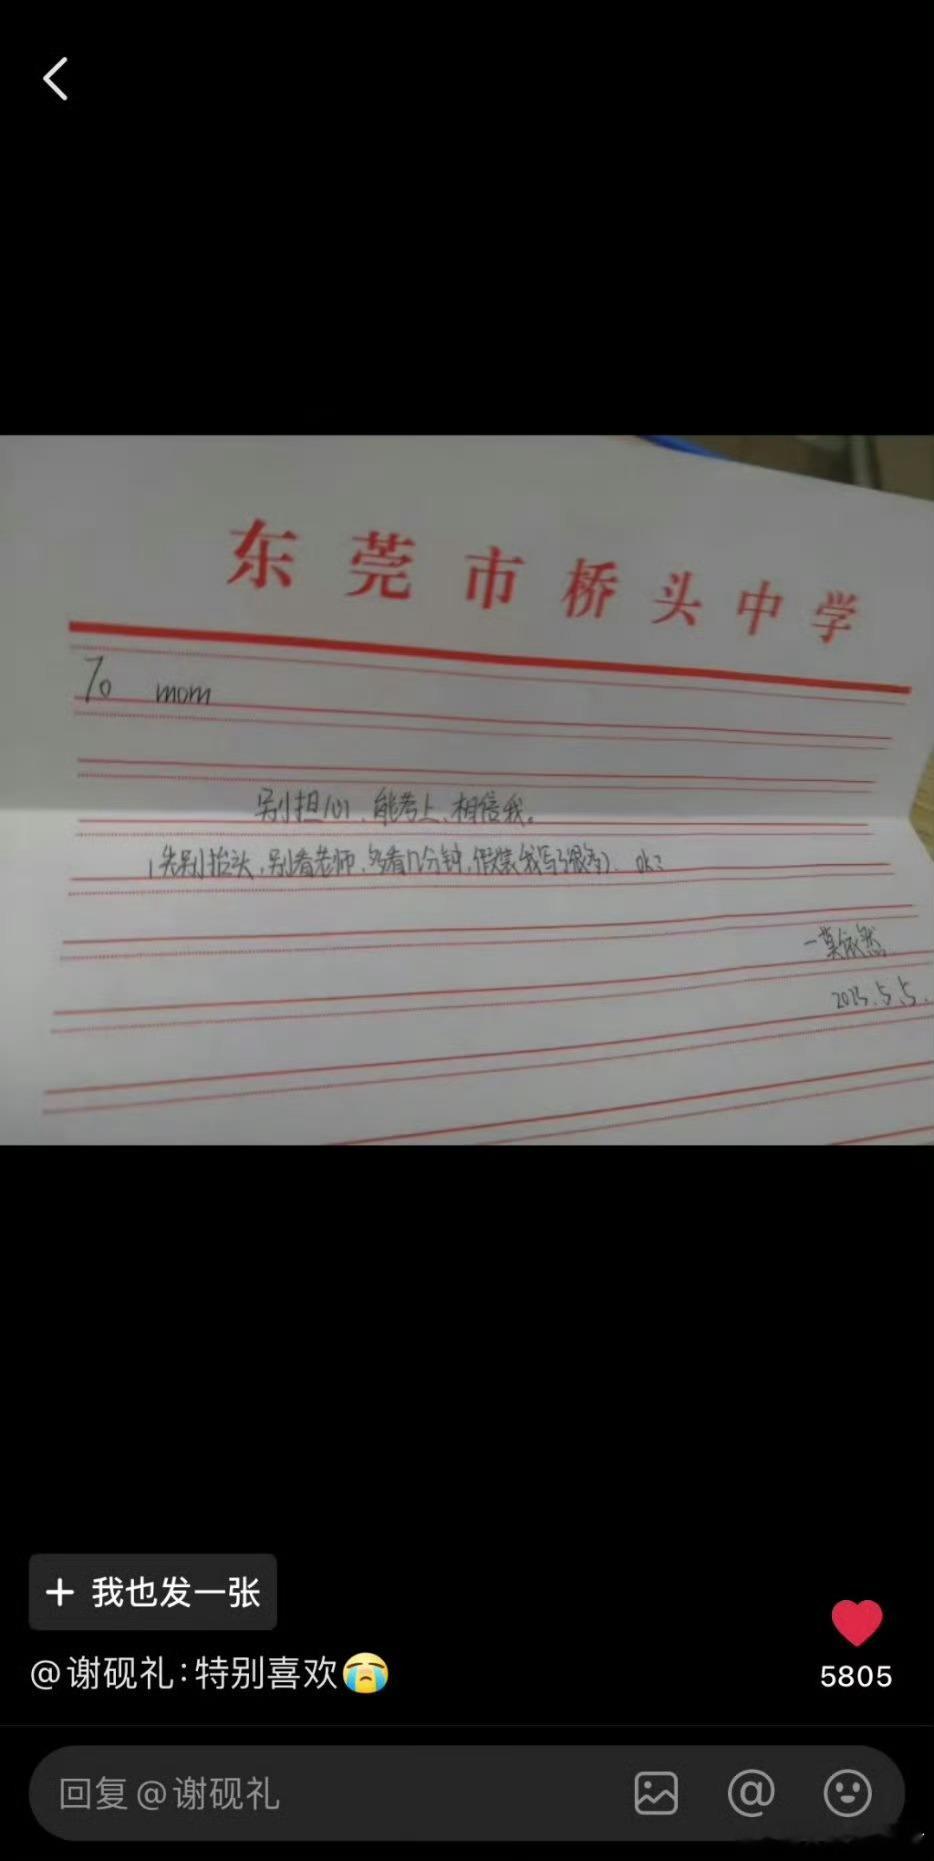 东莞市桥头中学
To mom
别担心、能考上、相信我。
(先别抬头,别看老师,多看几分钟,假装我写了很多)、ok?
一莫依然
2025.5.5.
+ 我也发一张
@谢砚礼:特别喜欢😭
5805
回复 @谢砚礼